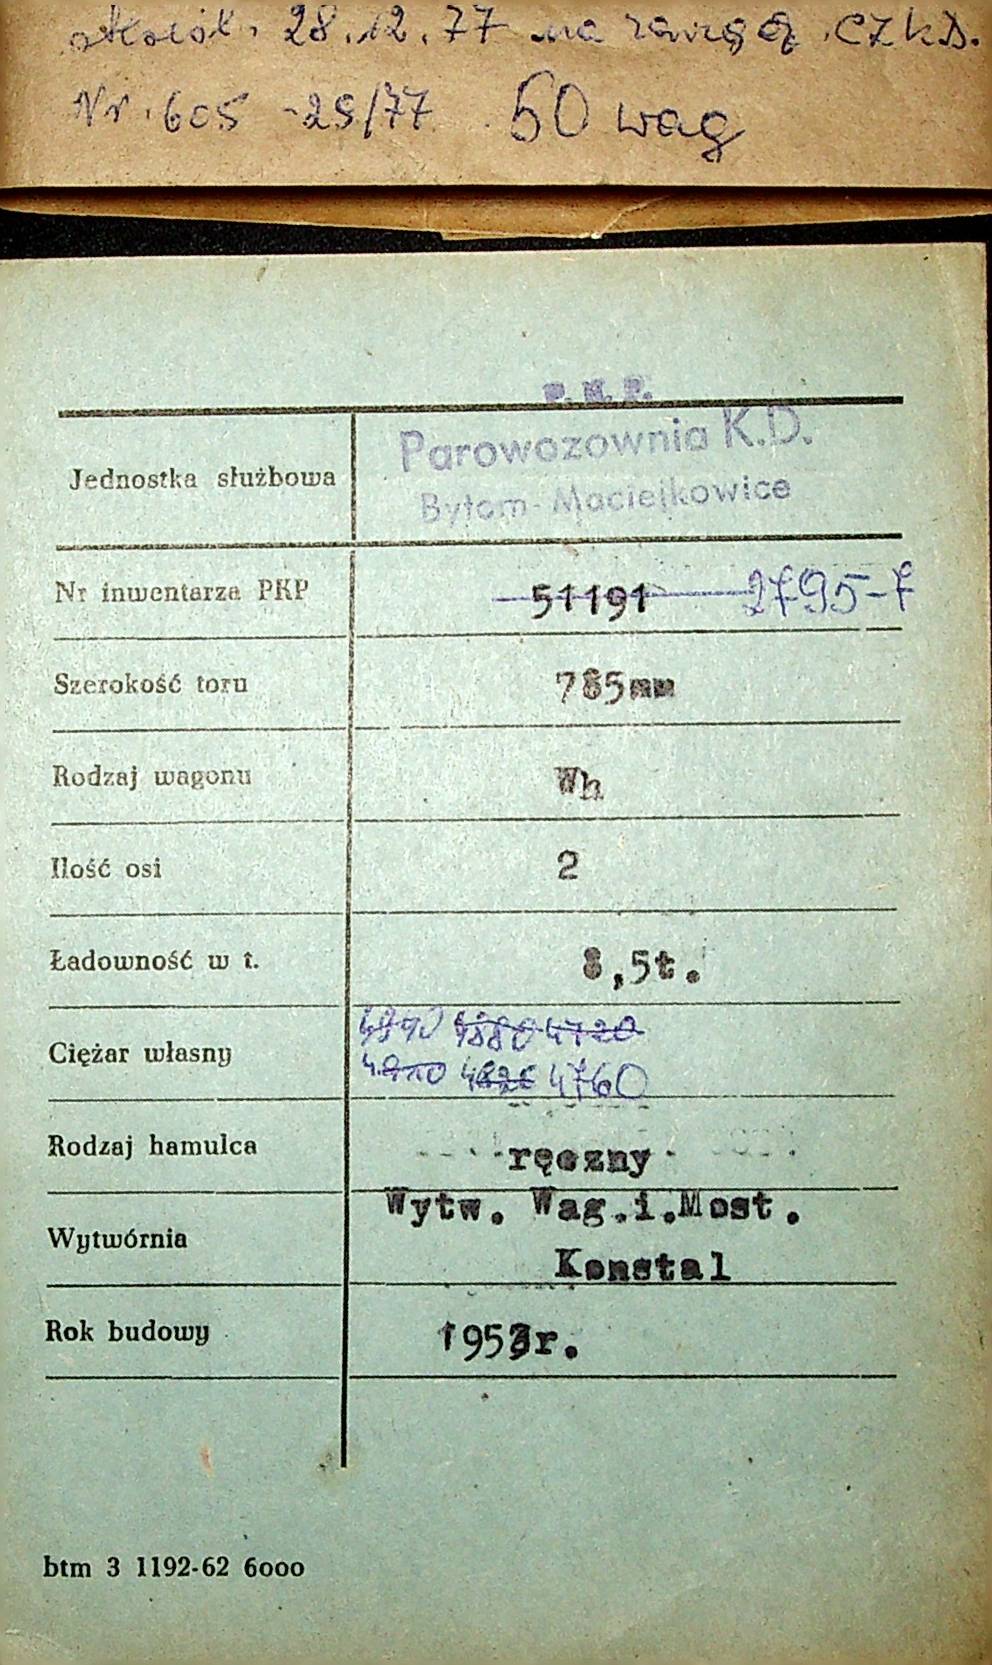 28.12.77 na CZKD.
Nr. 605 -29/77 50 wag
P.K.P.
Parowozownia K.D.
Bytom-Maciejkowice
Jednostka służbowa
Nr inwentarza PKP 51191 2795-7
Szerokość toru 785mm
Rodzaj wagonu Wh
Ilość osi 2
Ładowność w t. 8,5t.
4880 4720
Ciężar własny
4760
Rodzaj hamulca ręczny
Wytw. Wag.i.Most.
Wytwórnia
Konstal
Rok budowy 1953r.
btm 3 1192-62 6000